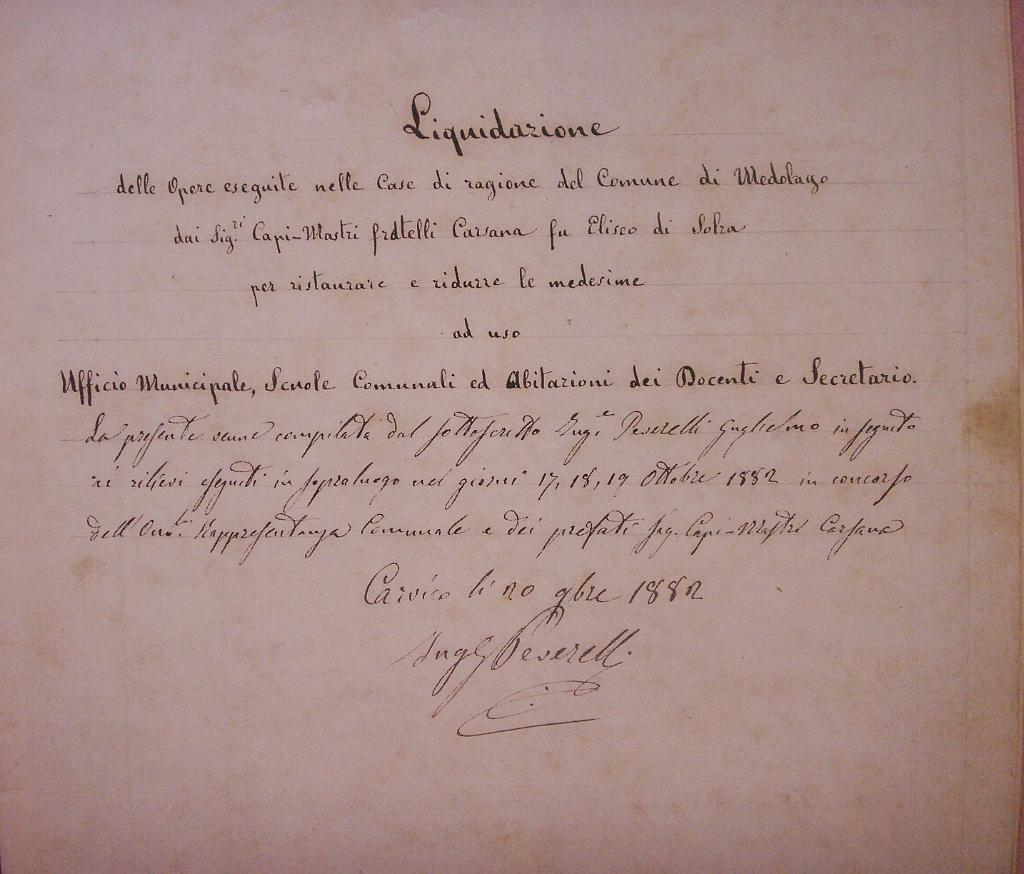 Liquidazione
delle Opere eseguite nelle Case di ragione del Comune di Medolago
dai Sig.ri Capi-Mastri fratelli Carsana fu Eliseo di Solza
per ristaurare e ridurre le medesime
ad uso
Ufficio Municipale, Scuole Comunali ed Abitazioni dei Docenti e Secretario.
La presente venne compilata dal sottoscritto Inge Peverelli Guglielmo in seguito
ai rilievi eseguiti in sopraluogo nei giorni 17, 18, 19 Ottobre 1882 in concorso
dell'Onole Rappresentanza Comunale e dei prefati Sig. Capi-Mastri Carsana
Carvico li 20 9bre 1882
Ing G Peverelli